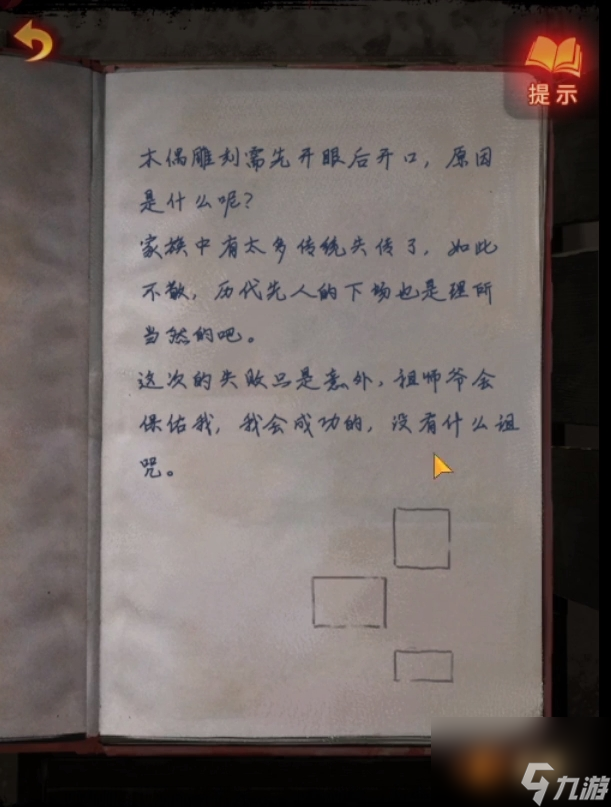 提示
木偶雕刻需先开眼后开口，原因
是什么呢？
家族中有太多传统失传了，如此
不敬，历代先人的下场也是理所
当然的吧。
这次的失败只是意外，祖师爷会
保佑我，我会成功的，没有什么诅
咒。
九游